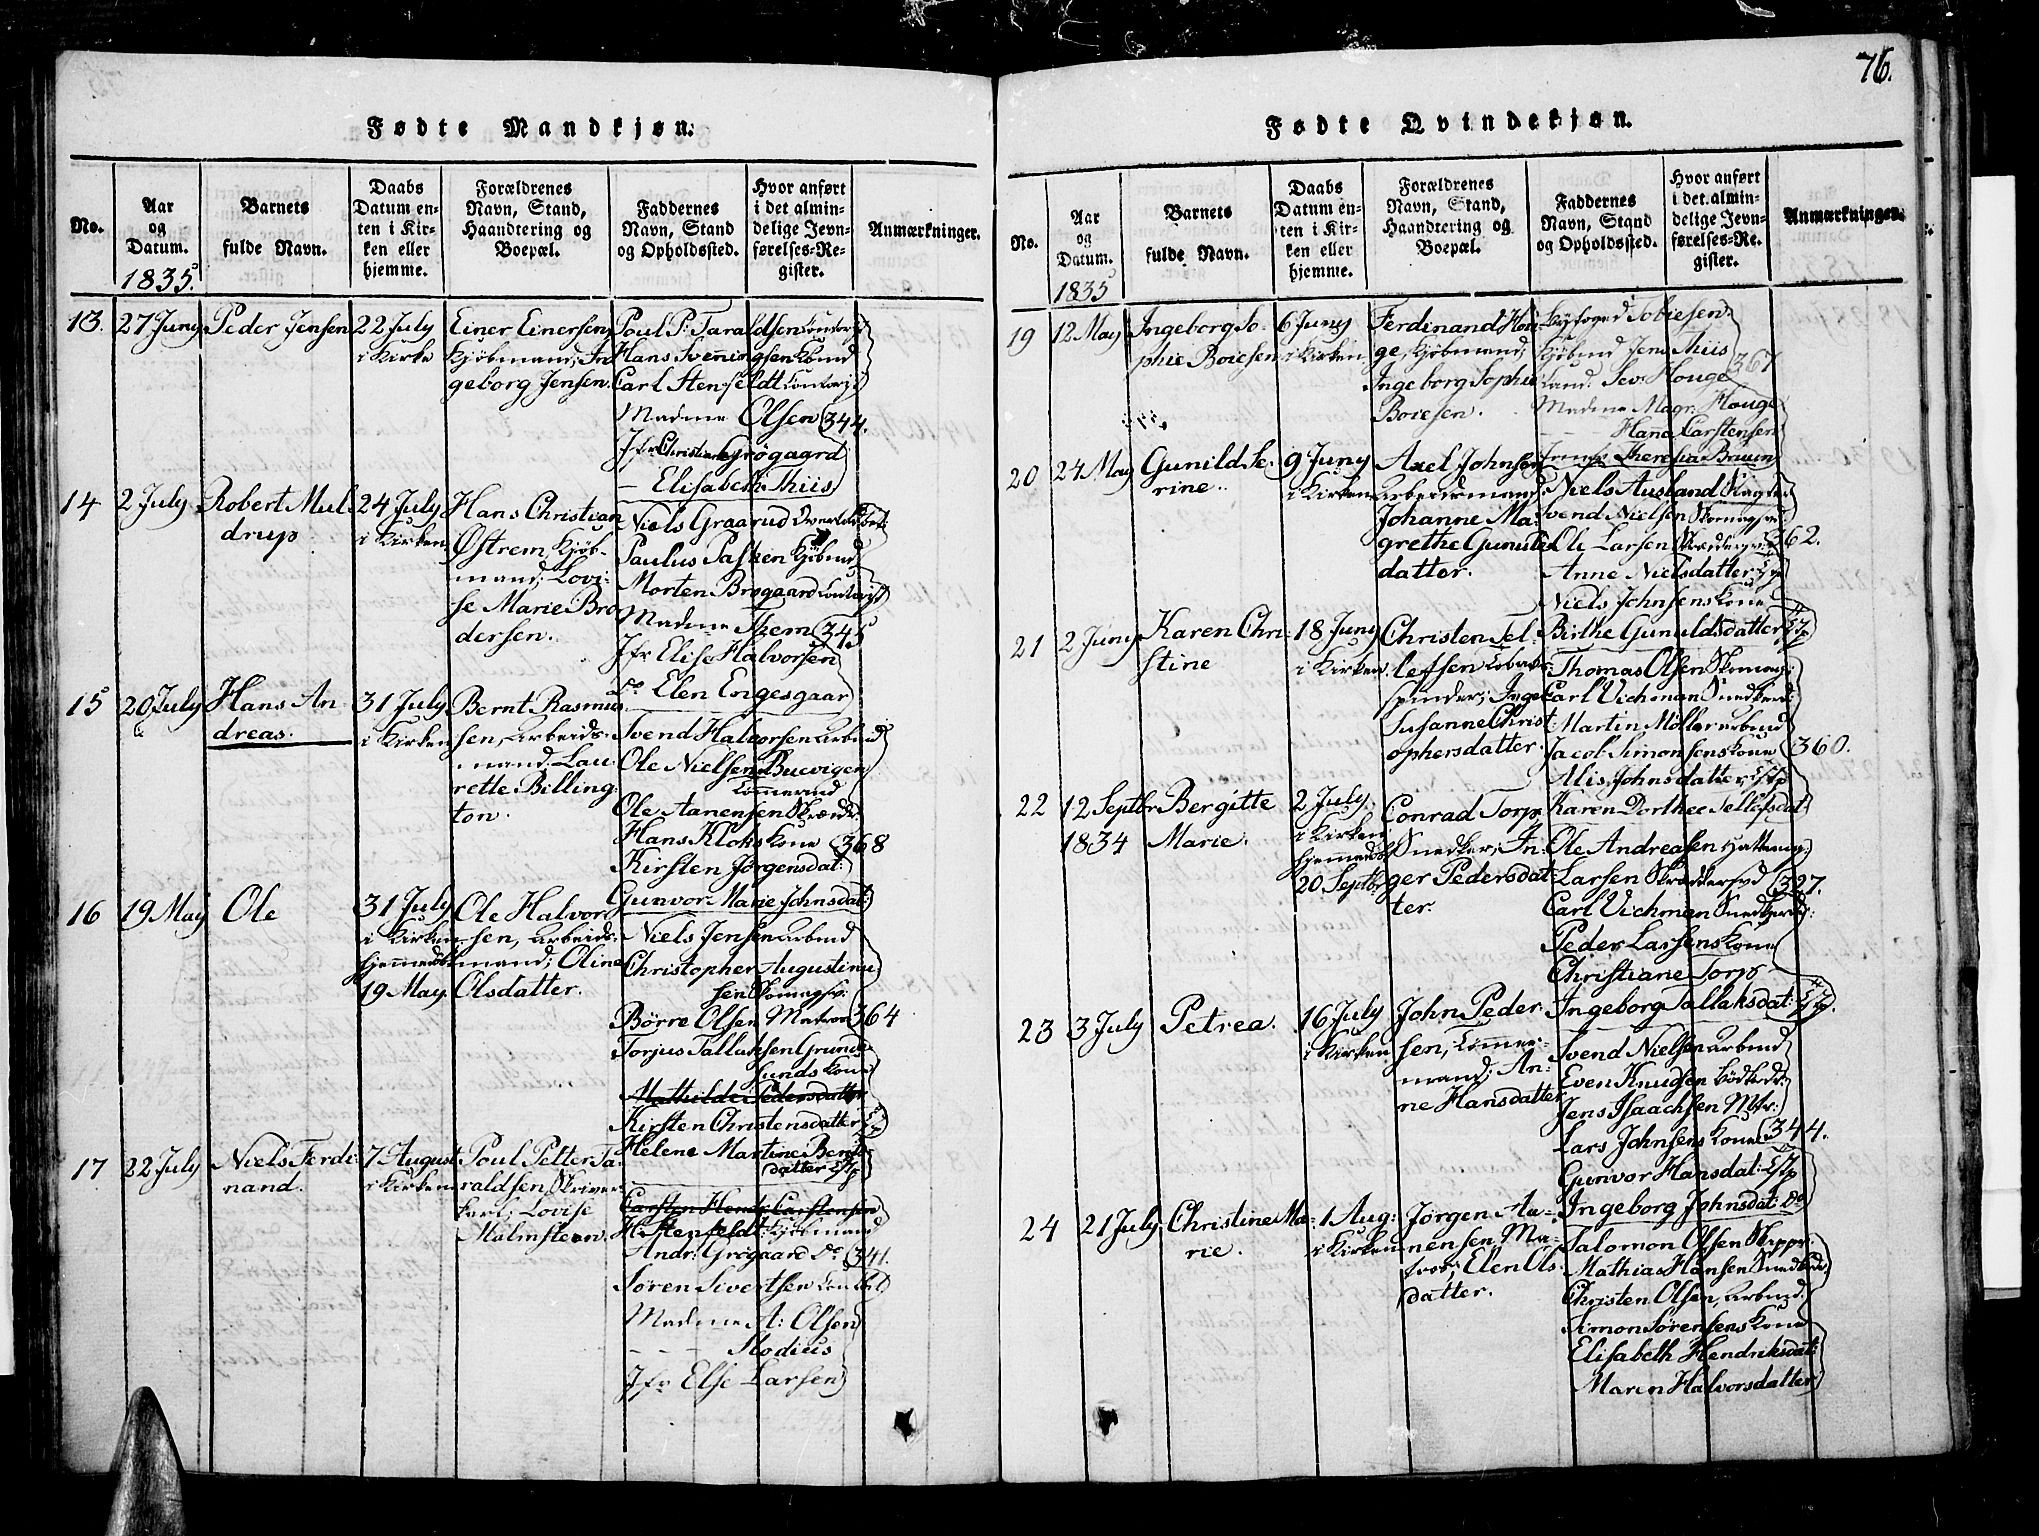 76.
Fødte Mandkjøn.
No.
Aar
og
Datum.
1835
Barnets
fulde Navn.
Daabs
Datum en-
ten i Kir-
ken eller
hjemme.
Forældrenes
Navn, Stand,
Haandtering og
Boepæl.
Faddernes
Navn, Stand
og Opholdssted.
Hvor anført
i det almin-
delige Jevn-
førelses-Re-
gister.
Anmærkninger.
13.
27 Juny
Peder Jensen
22 July
i Kirke
Einer Einersen
Kjøbmand; In
geborg Jensen.
Poul P: Taraldsen
Hans Svenningsen
Carl Stenfeldt
Madme Olsen
344.
Jfr Christiane Grögaard
— Elisabeth Thiis
14
2 July
Robert Mul
drup
24 July
i Kirken
Hans Christian
Østrem, Kjøb-
mand; Lovi-
se Marie Bro
dersen.
Niels Graarud
Paulus Pasken Kjøbmd
Morten Brogaard
Madme Them
345
Jfr Elise Halvorsen
Do Elen Engesgaar
15
20 July
Hans An
dreas.
31 July
i Kirken
Bernt Rasmus
sen, Arbeids-
mand; Lau-
rette Billing
ton.
Svend Halvorsen Arbmd
Ole Nielsen Buevigen
Tömermd
Ole Aanensen
Hans Kloks Kone
368
Kirsten Jörgensdat:
Gunvor Marie Johnsdat:
16
19 May
Ole
31 July
i Kirken
hjemmedöbt
19 May.
Ole Halvor
sen, Arbeids-
mand; Oline
Olsdatter.
Niels Jensen Arbmd
Christopher Augustinu
sen Skomagsv:
Börre Olsen Matros
364
Torjus Tallaksen Grund
sunds Kone
Mathilde Pedersdatter
Kirsten Christensdatter
Helene Martine Bernts
datter
17
22 July
Niels Ferdi
nand.
7 August
i Kirken
Poul Petter Ta-
raldsen, Skriver-
karl; Lovise
Malmsteen.
Carsten Henr: Carstensen
H: Stenfeldt: Kjöbmand
Andr: Grögaard Do
341.
Sören Sivertsen
Madme A: Olsen
— — — Modius
Jfr Else Larsen
Fødte Qvindekjøn.
No.
Aar
og
Datum.
1835
Barnets
fulde Navn.
Daabs
Datum en-
ten i Kir-
ken eller
hjemme.
Forældrenes
Navn, Stand,
Haandtering og
Boepæl.
Faddernes
Navn, Stand
og Opholdssted.
Hvor anført
i det almin-
delige Jevn-
førelses-Re-
gister.
Anmærkninger.
19
12 May
Ingeborg So-
phie Boiesen
6 Juny
i Kirken
Ferdinand Hou
ge, Kjöbmand;
Ingeborg Sophie
Boiesen.
Byfoged Tobiesen.
Kjöbmd Jens Thiis
367
Cand: Sev: Houge
Madme Magr: Houge
Hanna Carstensen
Theresia Bruun
20
24 May
Gunild Se-
rine.
9 Juny
i Kirken
Axel Johnsen
Arbeidsmand;
Johanne Ma-
grethe Gunulds
datter.
Niels Ausland Slagter
Svend Nielsen Skomagsv:
Ole Larsen
362.
Anne Nielsdatter
Niels Johnsens Kone
Birthe Gunuldsdatter
21
2 Juny
Karen Chri-
stine
18 Juny
i Kirken
Christen Tel-
lefsen Tobaks-
spinder; Inger
Susanne Christ-
ophersdatter.
Thomas Olsen Skomag:
Carl Vichman Snedker
Martin Möller Arbmd
Jacob Simonsens Kone
360.
Alis Johnsdatter
Karen Dorthee Tellefsdat:
22
12 Septbr
1834
Bergitte
Marie.
2 July
i Kirken
hjemmedöbt
20 Septbr
Conrad Torp
Snedker; In-
ger Pedersdat
ter.
Ole Andreasen Hattemag:
Larsen Skræddersvd
327.
Carl Vichman Snedker
Peder Larsens Kone
Christiane Torp
Ingeborg Tallaksdat:
23
3 July
Petrea.
16 July
i Kirken
John Peder-
sen, Tömmer-
mand; An-
ne Hansdatter
Svend Nielsen Arbmd
Even Knudsen Bödker
Jens Isaachsen Mtr:
Lars Johnsens Kone
344.
Gunvor Hansdat:
Ingeborg Johnsdat: Do
24
21 July
Christine Ma-
rie.
1 Aug:
i Kirken
Jörgen Aa-
nensen, Ma-
tros; Elen Ols-
datter.
Salomon Olsen Skipper
Mathias Hansen Snedker
Christen Olsen, Arbmd
Simon Sörensens Kone
Elisabeth Hendriksdat:
Maren Halvorsdatter